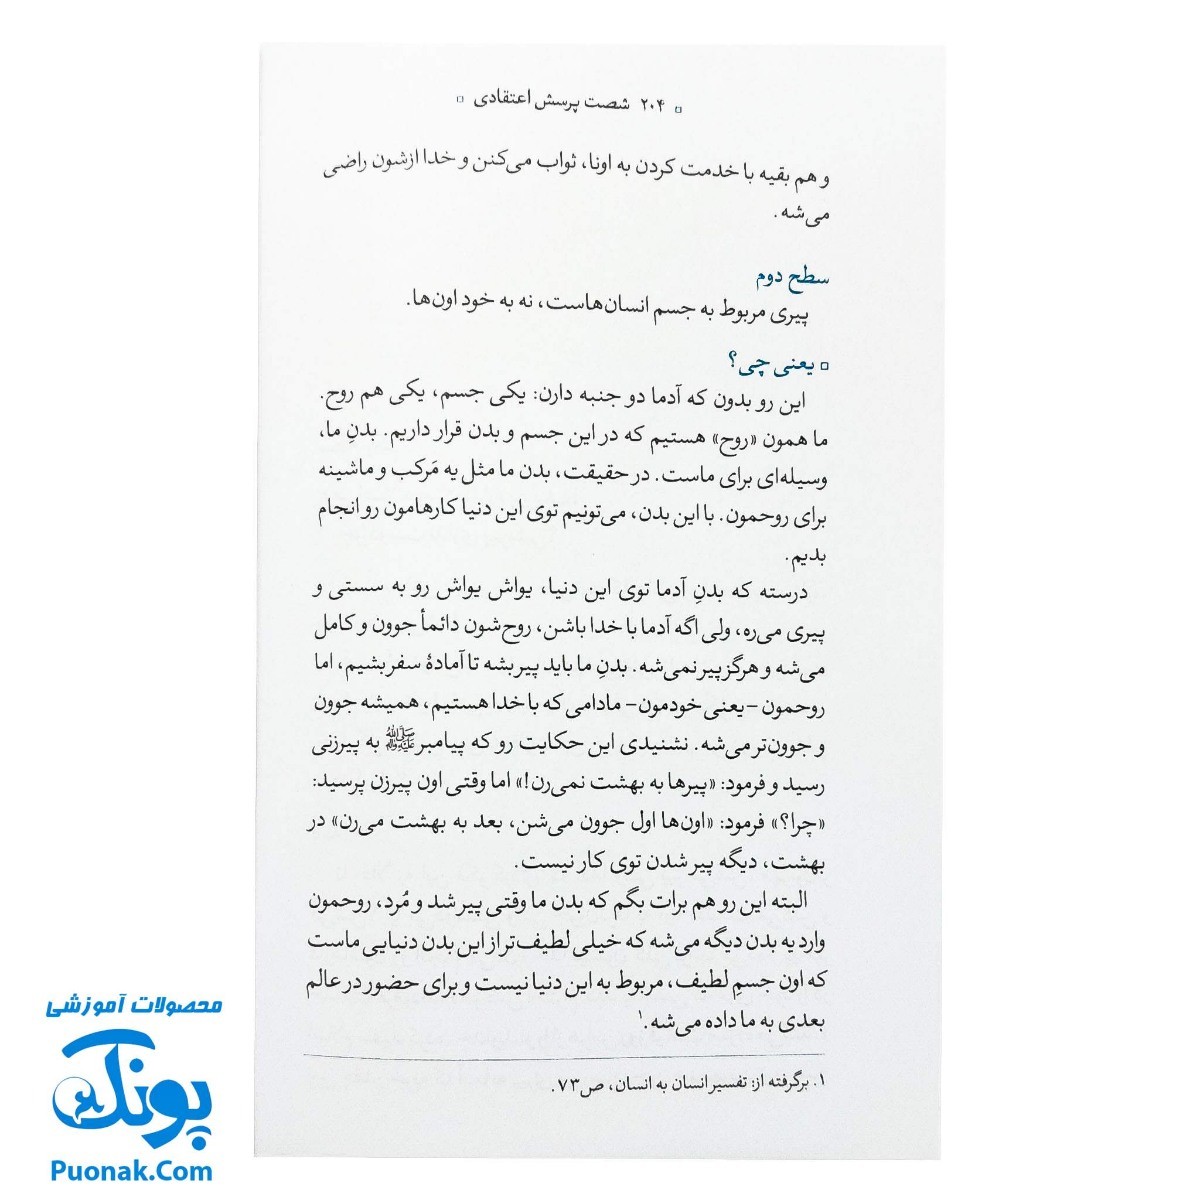 ▫ ۲۰۴ شصت پرسش اعتقادی ▫
و هم بقیه با خدمت کردن به اونا، ثواب می‌کنن و خدا ازشون راضی
می‌شه.
سطح دوم
پیری مربوط به جسم انسان‌هاست، نه به خود اون‌ها.
▫ یعنی چی؟
این رو بدون که آدما دو جنبه دارن: یکی جسم، یکی هم روح.
ما همون «روح» هستیم که در این جسم و بدن قرار داریم. بدنِ ما،
وسیله‌ای برای ماست. در حقیقت، بدن ما مثل یه مَرکب و ماشینه
برای روحمون. با این بدن، می‌تونیم توی این دنیا کارهامون رو انجام
بدیم.
درسته که بدنِ آدما توی این دنیا، یواش یواش رو به سستی و
پیری می‌ره، ولی اگه آدما با خدا باشن، روح‌شون دائمأ جوون و کامل
می‌شه و هرگز پیر نمی‌شه. بدنِ ما باید پیر بشه تا آمادهٔ سفر بشیم، اما
روحمون -یعنی خودمون- مادامی که با خدا هستیم، همیشه جوون
و جوون‌تر می‌شه. نشنیدی این حکایت رو که پیامبر ﷺ به پیرزنی
رسید و فرمود: «پیرها به بهشت نمی‌رن!» اما وقتی اون پیرزن پرسید:
«چرا؟» فرمود: «اون‌ها اول جوون می‌شن، بعد به بهشت می‌رن» در
بهشت، دیگه پیر شدن توی کار نیست.
البته این رو هم برات بگم که بدن ما وقتی پیر شد و مُرد، روحمون
وارد یه بدن دیگه می‌شه که خیلی لطیف‌تر از این بدن دنیایی ماست
که اون جسمِ لطیف، مربوط به این دنیا نیست و برای حضور در عالم
بعدی به ما داده می‌شه.۱
۱. برگرفته از: تفسیر انسان به انسان، ص۷۳.
محصولات آموزشی
پونک
Puonak.Com